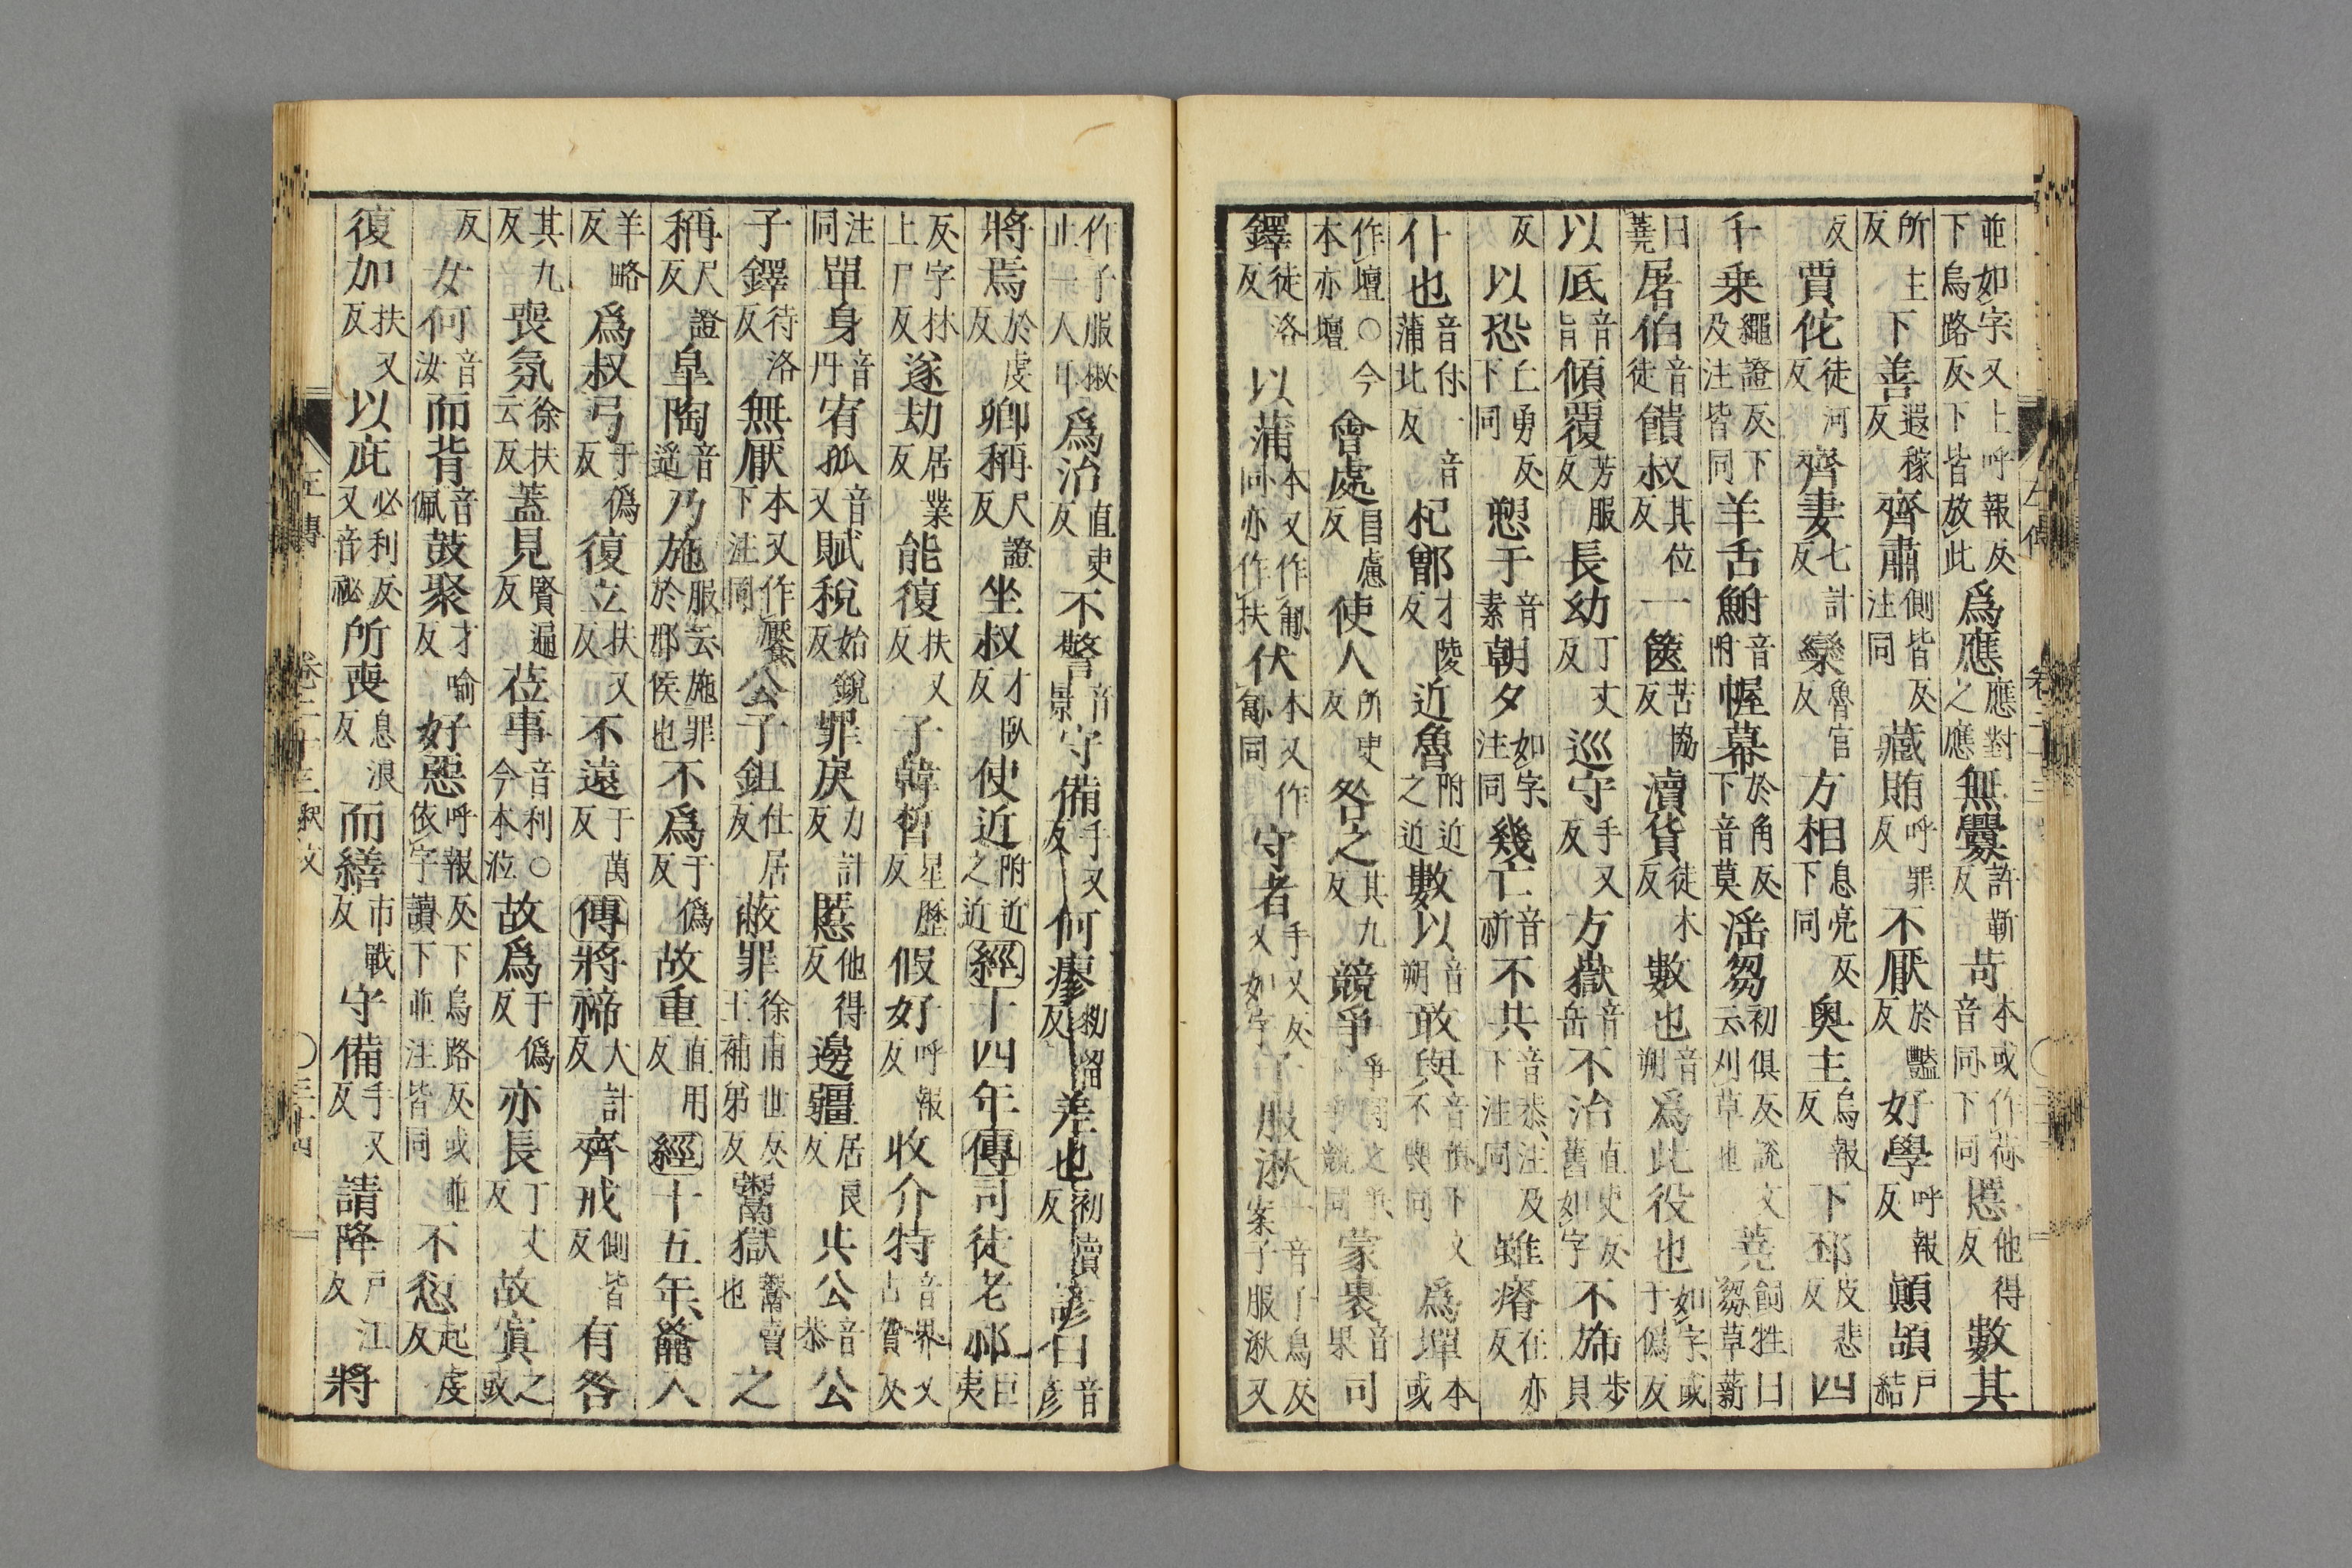 並如字又上呼報反下烏路反下皆放此爲應應對之應無釁許靳反苛本或作荷音同下同慝他得反數其
所主反下善遐稼反齊肅側皆反注同藏賄呼罪反不厭於豔反好學呼報反顚頡戶結
反賈佗徒河反齊妻七計反欒魯官反方相息亮反下同奧主烏報反下邳皮悲反四
千乗繩證反及注皆同下羊舌鮒音附幄幕於角反下音莫滛芻初俱反說文云刈草也蕘飼牲曰芻草薪
曰蕘屠伯音徒饋叔其位反一篋苦協反瀆貨徒木反數也音朔爲此役也如字或于僞反
以底音旨傾覆芳服反長幼丁丈反巡守手又反方嶽音岳不治直吏反舊如字不斾步貝
反以恐丘勇反下同愬于音素朝夕如字注同幾亡音祈不共音恭注及下注同雖瘠在亦反
仆也音赴一音蒲北反杞鄫才陵反近魯附近之近數以音朔敢與音預下文不與同爲墠本或
作壇○今本亦壇會處昌慮反使人所吏反咎之其九反競爭爭鬪之爭競同蒙裹音果司
鐸徒洛反以蒲本又作匍同亦作扶伏本又作匐同守者手又反又如字子服湫音了鳥反又案子服湫又
作子服椒止一人耳爲治直吏反不警音景守備手又反何瘳勑留反差也初賣反諺曰音彦
將焉於虔反卿稱尺證反坐叔才臥反使近附近之近經十四年傳司徒老祁巨夷
反字林上尸反遂劫居業反能復扶又反子韓晳星歷反假好呼報反收介特音界又古賀反
注同單身音丹宥孤音又賦稅始銳反罪戾力計反慝他得反邊疆居良反共公音恭公
子鐸待洛反無厭本又作饜下注同公子鉏仕居反蔽罪徐甫世反王補弟反鬻獄鬻賣也之
稱尺證反皐陶音遥乃施服云施罪於邢侯也不爲于僞反故重直用反經十五年籥入
羊略反爲叔弓于僞反復立扶又反不遠于萬反傳將禘大計反齊戒側皆反有咎
其九反喪氛徐扶云反蓋見賢遍反莅事音利○今本涖故爲于僞反亦長丁丈反故寘之或
反女何音汝而背音佩鼓聚才喻反好惡呼報反下烏路反或並依字讀下並注皆同不愆起虔反
復加扶又反以庇必利反又音祕所喪息浪反而繕市戰反守備手又反請降戶江反將
左傳　卷二十三釈文　○三十四